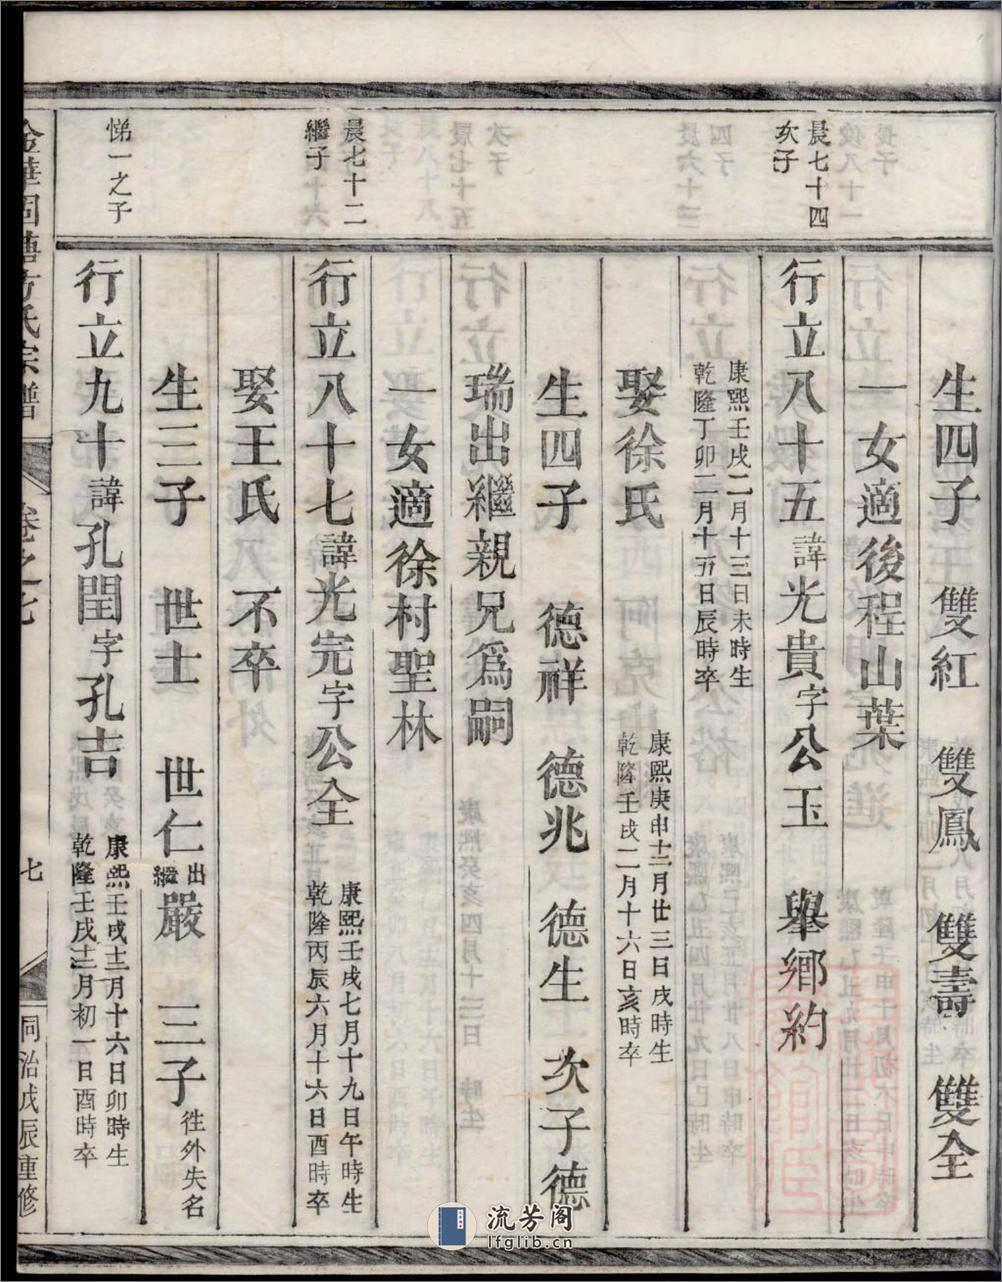 生四子 雙紅 雙鳳 雙壽 雙全
一女適後程山葉
晨七十四
次子
行立八十五諱光貴字公玉 舉鄉約
康熙壬戌二月十三日未時生
乾隆丁卯二月十五日辰時卒
娶徐氏
康熙庚申十二月廿三日戌時生
乾隆壬戌二月十六日亥時卒
生四子 德祥 德兆 德生 次子德
瑞出繼親兄爲嗣
一女適徐村聖林
晨七十二
繼子
行立八十七諱光完字公全
康熙壬戌七月十九日午時生
乾隆丙辰六月十六日酉時卒
娶王氏 不卒
生三子 世士 世仁出繼嚴 三子徃外失名
悌一之子
行立九十諱孔閏字孔吉
康熙壬戌十二月十六日卯時生
乾隆壬戌十二月初一日酉時卒
金華固塘方氏宗譜
卷之七
七
同治戊辰重修
流芳阁
lfglib.cn